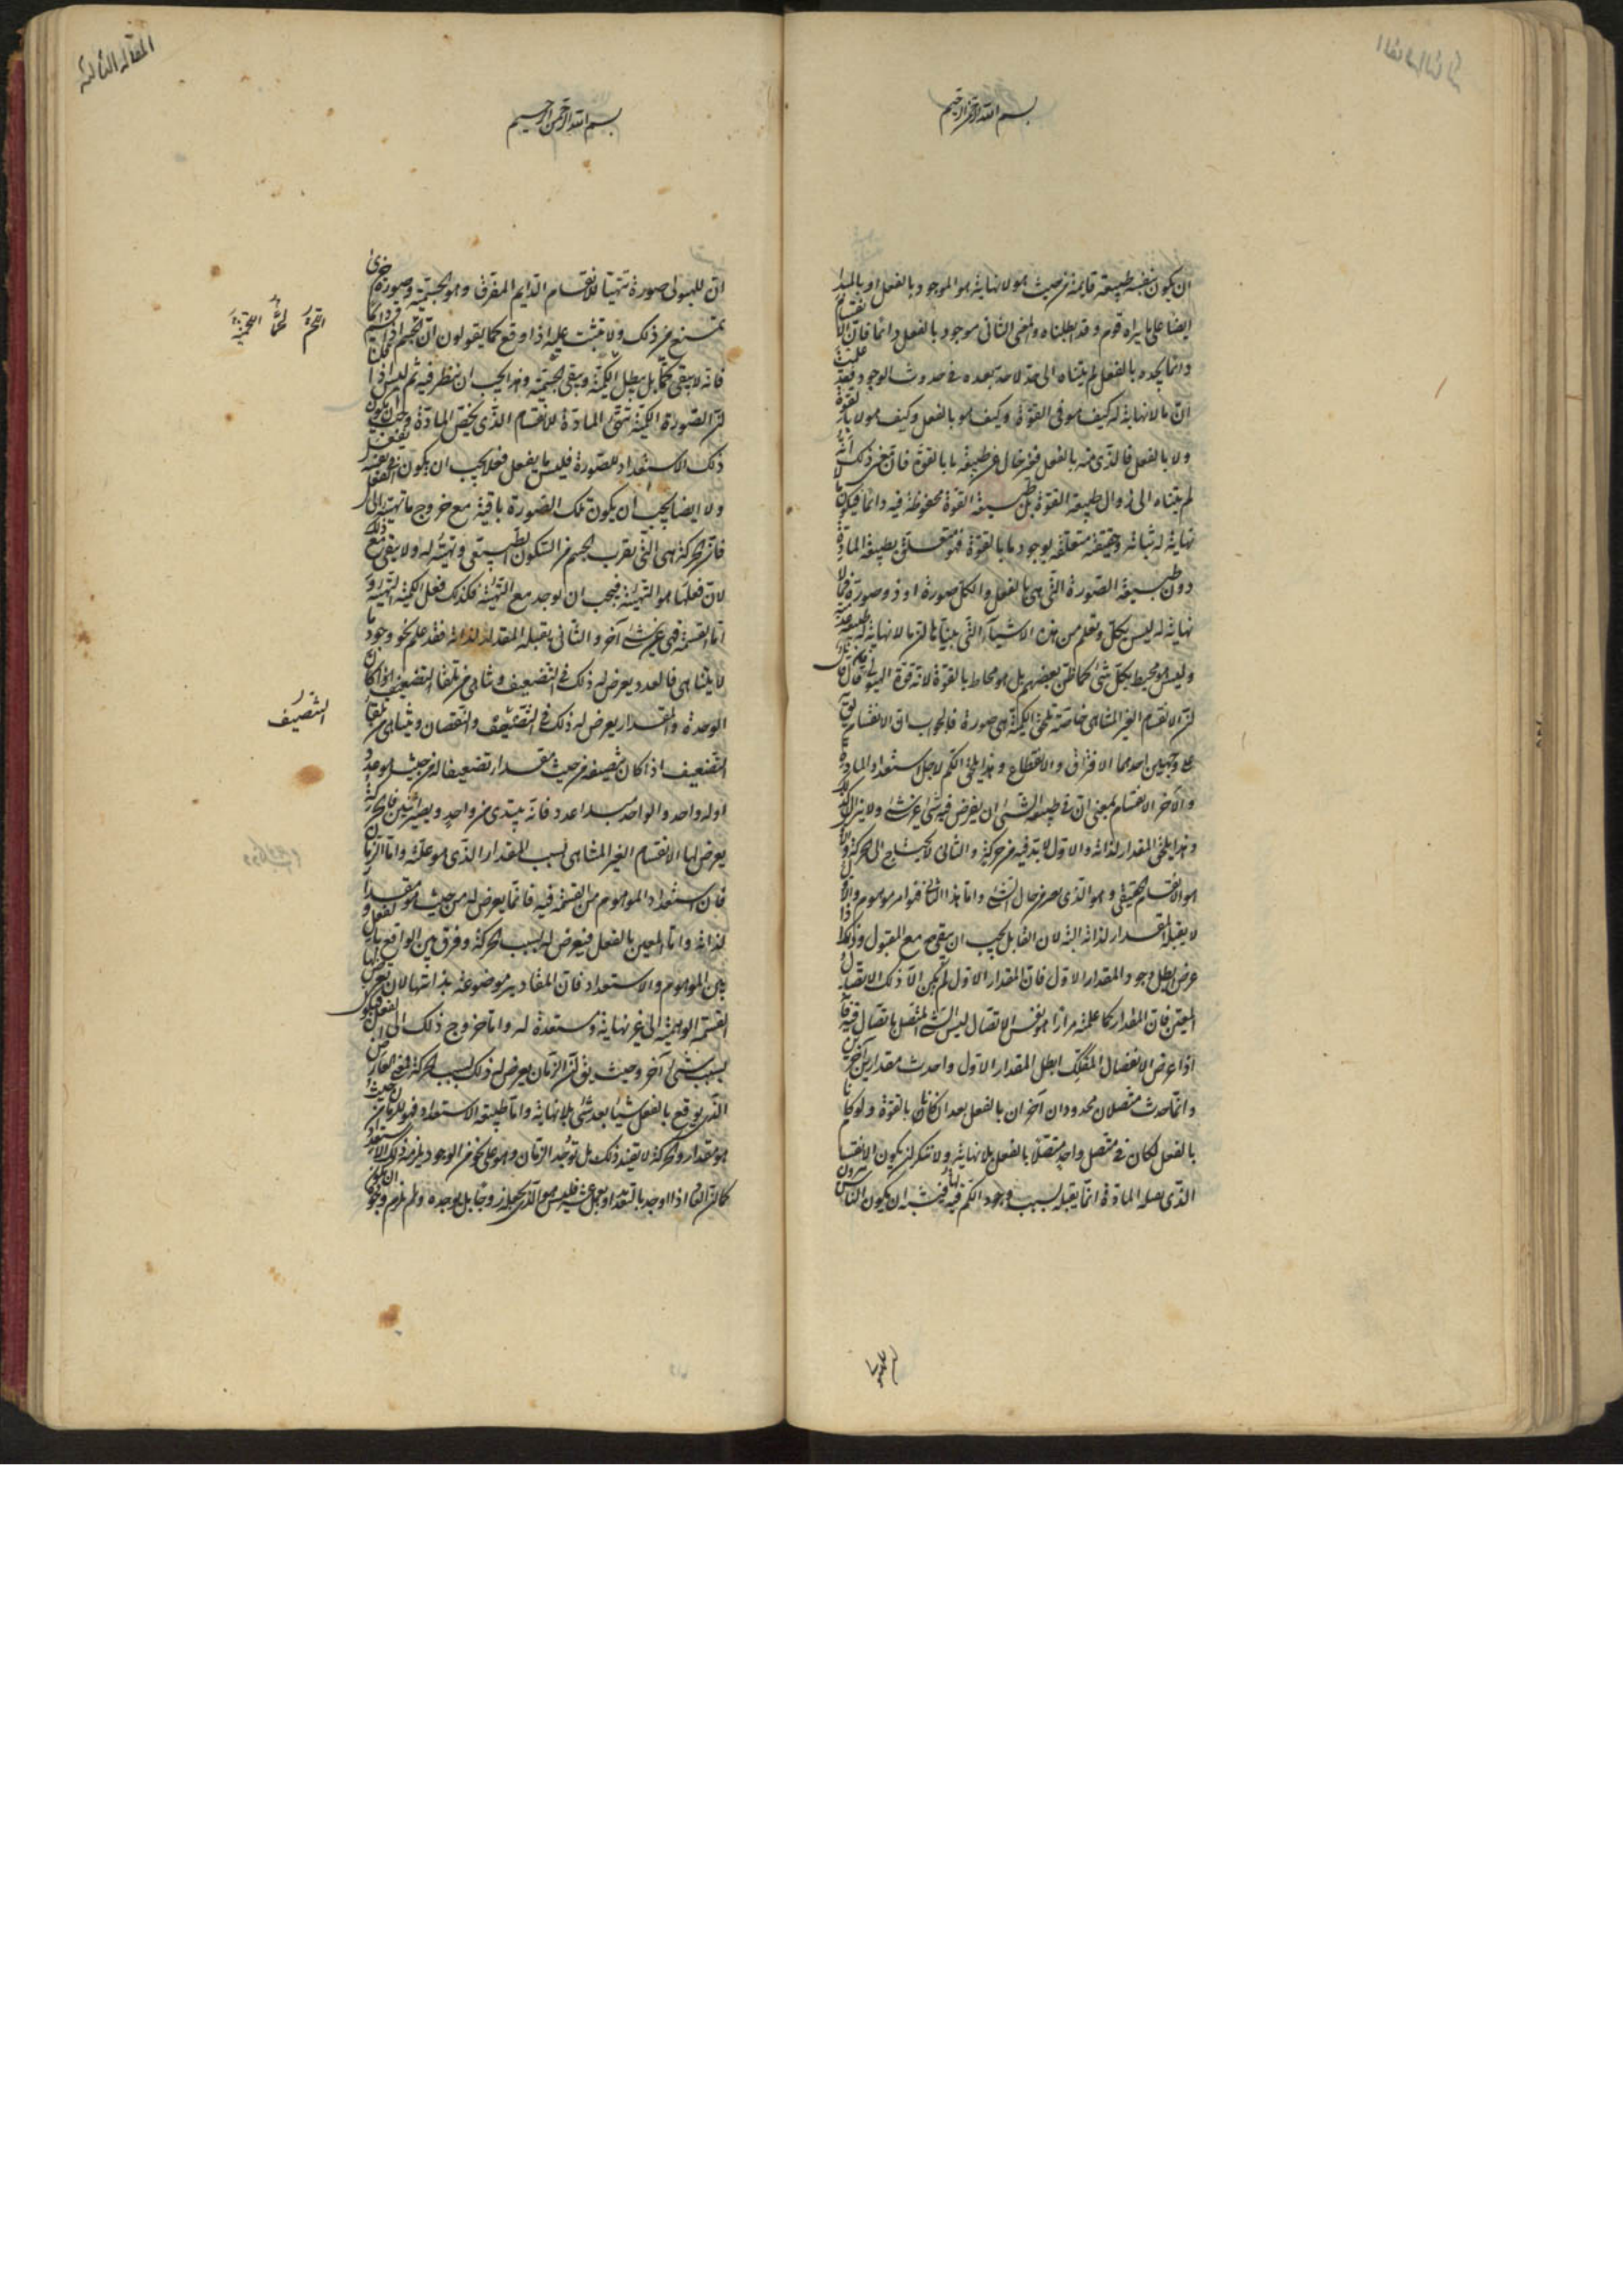 بسم الله الرحمن الرحيم
ان يكون نفسه طبيعة قايمة من حيث هو لا نهاية هو الموجود بالفعل او بالمبدا
ايضا على ما يراه قوم وقد ابطلناه والمعنى الثانى موجود بالفعل دائما فان الانقسام
وانما يجده بالفعل لم يتناه الى حد لا حد بعده فى حدوث الوجود فقد علمت
ان ما لا نهاية له كيف هو فى القوة وكيف هو بالفعل وكيف هو لا بالقوة
ولا بالفعل فالذى منه بالفعل فى طبيعة ما بالقوة فان معنى ذلك انه
لم يتناه الى زوال طبيعة القوة بل طبيعة القوة محفوظة فيه دائما فيكون ما لا
نهاية له ثباته وحقيقته متعلقة بوجود ما بالقوة فهو متعلق بطبيعة المادة
دون طبيعة الصورة التى هى بالفعل والكل صورة او ذو صورة فما لا
نهاية له ليس بكل وتعلم من هذه الاشياء التى بيناها ان ما لا نهاية له طبيعة عدمية
وليس هو محيط بكل شئ كما ظن بعضهم بل هو محاط بالقوة لانه قوة الهيولى فان قال قائل
ان الانقسام الغير المتناهى خاصة تلحق الكمية وهى صورة فالجواب ان الانقسام يق
على وجهين احدهما الافتراق والانقطاع وهذا يلحق الكم لاجل استعداد المادة
والاخر الانقسام بمعنى ان فى طبيعة الشئ ان يفرض فيه شئ غير شئ ولا يزال كذلك
وهذا يلحق المقدار لذاته والاول لا بد فيه من حركة والثانى لا يحتاج الى حركة والاول
هو الانقسام الحقيقى وهو الذى يغير حال الشئ واما هذا الثانى فهو امر موهوم والاول
لا يقبله المقدار لذاته البتة لان القابل يجب ان يبقى مع المقبول وذلك اذا
عرض ابطل وجود المقدار الاول فان المقدار الاول لم يكن الا ذلك الاتصال
المعين فان المقدار كما علمته مرارا هو نفس الاتصال ليس الشئ المتصل باتصال فيه فا
اذا عرض الانفصال المفكك ابطل المقدار الاول واحدث مقدارين آخرين
وانما حدث متصلان محدودان آخران بالفعل بعد ان كانا بالقوة ولو كانا
بالفعل لكان فى متصل واحد متصلات بالفعل بلا نهاية ولا ننكر ان يكون الانقسام
الذى يقبله المادة انما يقبله بسبب وجود الكم فيه فيشبه ان يكون الناس يرون
المقالة الثالثة
بسم الله الرحمن الرحيم
ان للهيولى صورة تهيّئها للانقسام الدايم المفرق وهو الجسمية وصورة اخرى
تمنع عن ذلك ولا تثبت عليه اذا وقع كما يقولون ان اللحم اذا قسم دائما
فانه لا يبقى لحما بل يبطل اللحمية ويبقى الجسمية وهذا يجب ان ينظر فيه ثم ليس اذا
ان الصورة الكمية تهيئ المادة للانقسام الذى يخص المادة وجب ان يكون
ذلك الاستعداد للصورة فليس ما يفعل فعلا يجب ان يكون يفعل فى نفسه
ولا ايضا يجب ان يكون تلك الصورة باقية مع خروج ما تهيئه الى الفعل
فان الحركة هى التى تقرب الجسم من السكون الطبيعى وتهيئه له ولا يبقى مع ذلك
لان فعلها هو التهيئة فيجب ان يوجد مع التهيئة فكذلك فعل الكمية التهيئة و
اما القسمة فمن شئ آخر والثانى يقبله المقدار لذاته فقد علم نحو وجود ما
لا يتناهى فالعدد يعرض له ذلك فى التضعيف
الوحدة والمقدار يعرض له ذلك فى التنصيف والنقصان ويتناهى من تلقاء
التضعيف اذا كان تنصيفه من حيث مقدار تضعيفا له من حيث العدد
اوله واحد والواحد مبدا عدد فانه يبتدى من واحد ويصير اثنين فالحركة
يعرض لها الانقسام الغير المتناهى بسبب المقدار الذى هو علته واما الزمان
فان استعداد الموهوم من القسمة فيه فانما يعرض له من حيث هو مقدار
لذاته واما المعين بالفعل فيعرض له بسبب الحركة وفرق بين الواقع بالفعل و
بين الموهوم والاستعداد فان المقادير موضوعة بذاتها لان تعرض لها
القسمة الوهمية الى غير نهاية ومستعدة له واما خروج ذلك الى الفعل فيكون
بسبب شئ آخر وحيث يق ان الزمان يعرض له ذلك بسبب الحركة فمعنى العارض
الذى يوقع بالفعل شيئا بعد شئ بلا نهاية واما طبيعة الاستعداد فهو للزمان من حيث
هو مقدار والحركة لا تفيد ذلك بل توجد الزمان وهو على نحو من الوجود يلزمه ذلك الاستعداد
اللحمُ لحمًا اللحميةُ
التنصيف